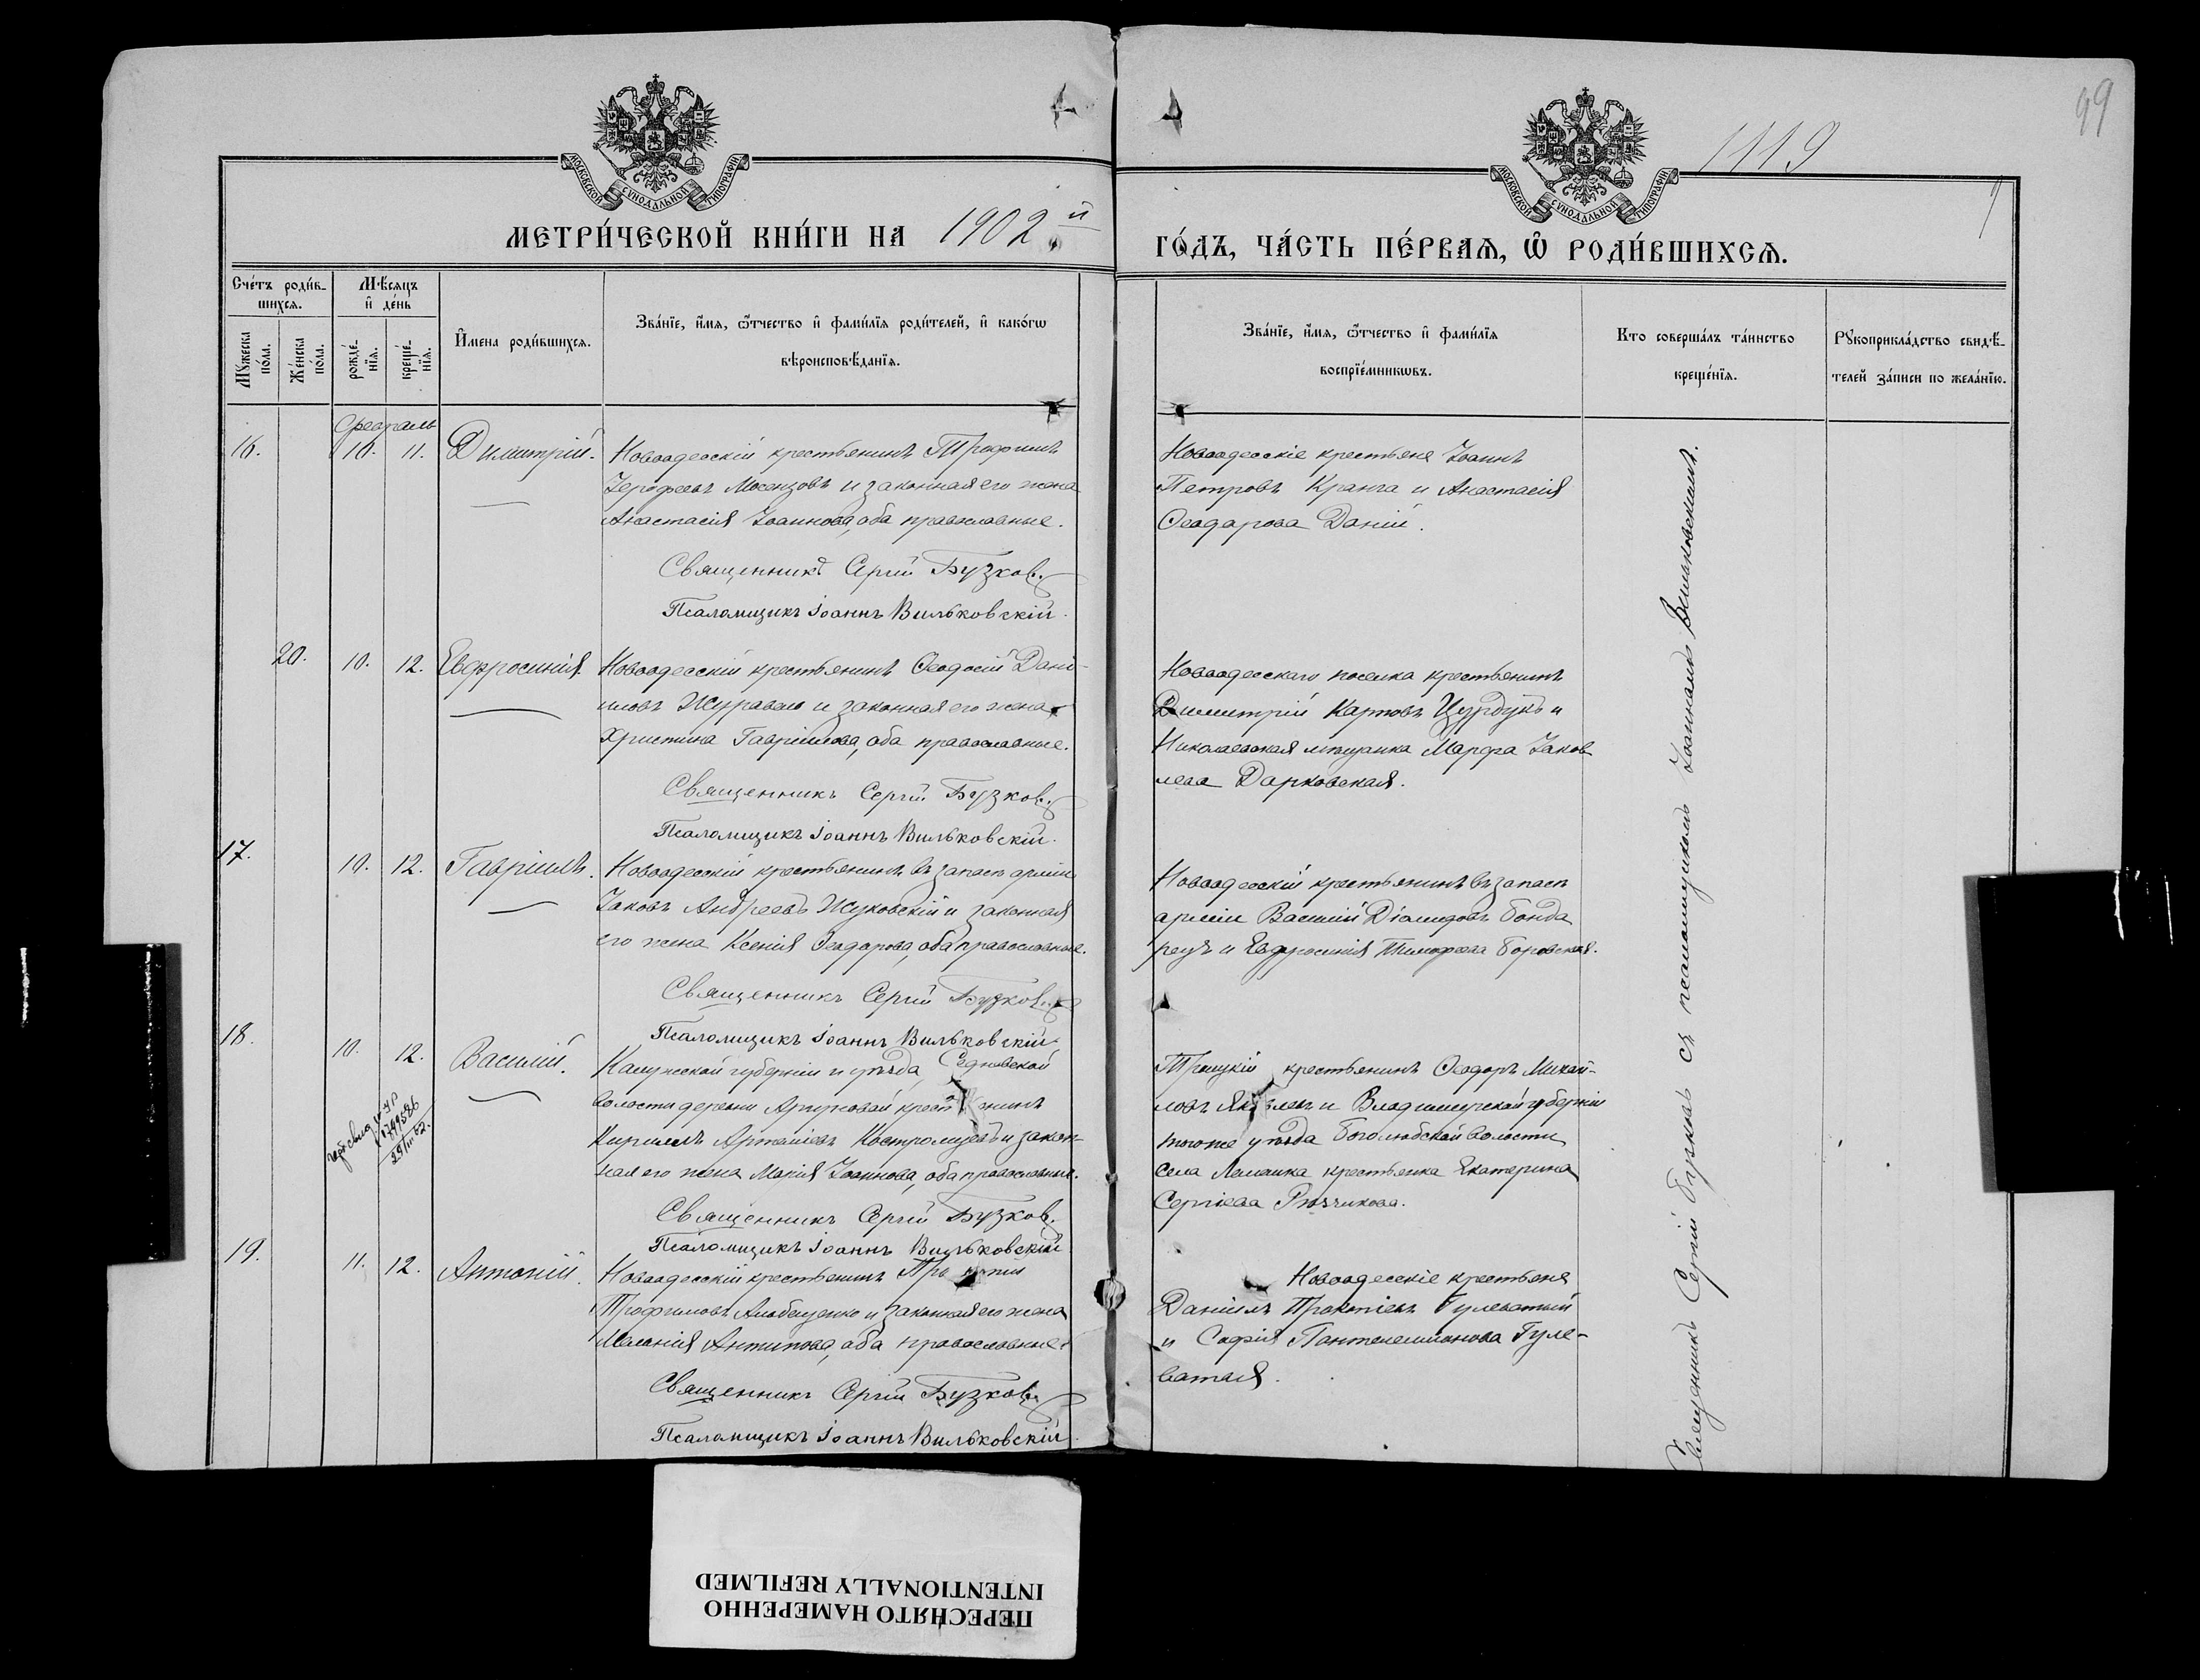 99
1119
МОСКОВСКОЙ СУНОДАЛЬНОЙ ТИПОГРАФІИ
МОСКОВСКОЙ СУНОДАЛЬНОЙ ТИПОГРАФІИ
МЕТРИ́ЧЕСКОЙ КНИ́ГИ НА 1902 й
ГО́ДЪ, ЧА́СТЬ ПЕ́РВАѦ, Ѿ РОДИ́ВШИХСѦ.
Сче́тъ роди́в-
шихсѧ.
Мѣ́сѧцъ
и҆ де́нь
Мꙋжеска по́ла.
Же́нска пола.
рожде́-
нїѧ.
креще́-
нїѧ.
И҆мена роди́вшихсѧ.
Зва́нїе, и҆́мѧ, ѻ҆́тчество и҆ фами́лїѧ роди́телей, и҆ како́гѡ
вѣроисповѣ́данїѧ.
Зва́нїе, и҆́мѧ, ѻ҆́тчество и҆ фами́лїѧ
воспрїе́мникѡвъ.
Кто соверша́лъ та́инство
креще́нїѧ.
Рꙋкоприкла́дство свидѣ́-
телей за́писи по жела́нїю.
Февраль
16. 10. 11. Димитрій.
Новоодесскій крестьянинъ Трофимъ
Іерофеевъ Мосенцовъ и законная его жена
Анастасія Іоаннова, оба православные.
Священникъ Сергій Бузков.
Псаломщикъ Іоаннъ Вильковскій.
Новоодесскіе крестьяне Іоаннъ
Петровъ Кранга и Анастасія
Ѳеодорова Даній.
20. 10. 12. Евфросинія.
Новоодесскій крестьянинъ Ѳеодосій Дані-
иловъ Журавель и законная его жена
Христина Гавріилова, оба православные.
Священникъ Сергій Бузков.
Псаломщикъ Іоаннъ Вильковскій.
Новоодесскаго поселка крестьянинъ
Димитрій Карповъ Цурдукъ и
Николаевская мѣщанка Марфа Іаков
лева Дарковская.
17. 10. 12. Гавріилъ.
Новоодесскій крестьянинъ въ запасѣ арміи
Іаковъ Андреевъ Жуковскій и законная
его жена Ксенія Ѳеодорова, оба православные.
Священникъ Сергій Бузков.
Псаломщикъ Іоаннъ Вильковскій.
Новоодесскій крестьянинъ въ запасѣ
арміи Василій Діамидовъ Бонда
рецъ и Евфросинія Тимофеева Боровская.
18. 10. 12. Василій.
Калужской губерніи и уѣзда,
волости деревни крестьянинъ
Кириллъ Артеміевъ Костромцевъ и закон-
ная его жена Марія Іоаннова, оба православные.
Священникъ Сергій Бузков.
Псаломщикъ Іоаннъ Вильковскій
Троицкій крестьянинъ Ѳеодоръ Михай-
ловъ и Владимірской губерніи
того же уѣзда Боголюбской волости
села крестьянка Екатерина
Сергіева
19. 11. 12. Антоній.
Новоодесскій крестьянинъ
Трофимовъ и законная его жена
Меланія Антипова, оба православные.
Священникъ Сергій Бузков.
Псаломщикъ Іоаннъ Вильковскій.
Новоодесскіе крестьяне
Даніилъ Прокопіевъ Гулеватый
и Софія Пантелеимонова Гуле-
ватая.
Священникъ Сергій Бузковъ съ псаломщикомъ Іоанномъ Вильковскимъ.
ПЕРЕСНЯТО НАМЕРЕННО
INTENTIONALLY REFILMED